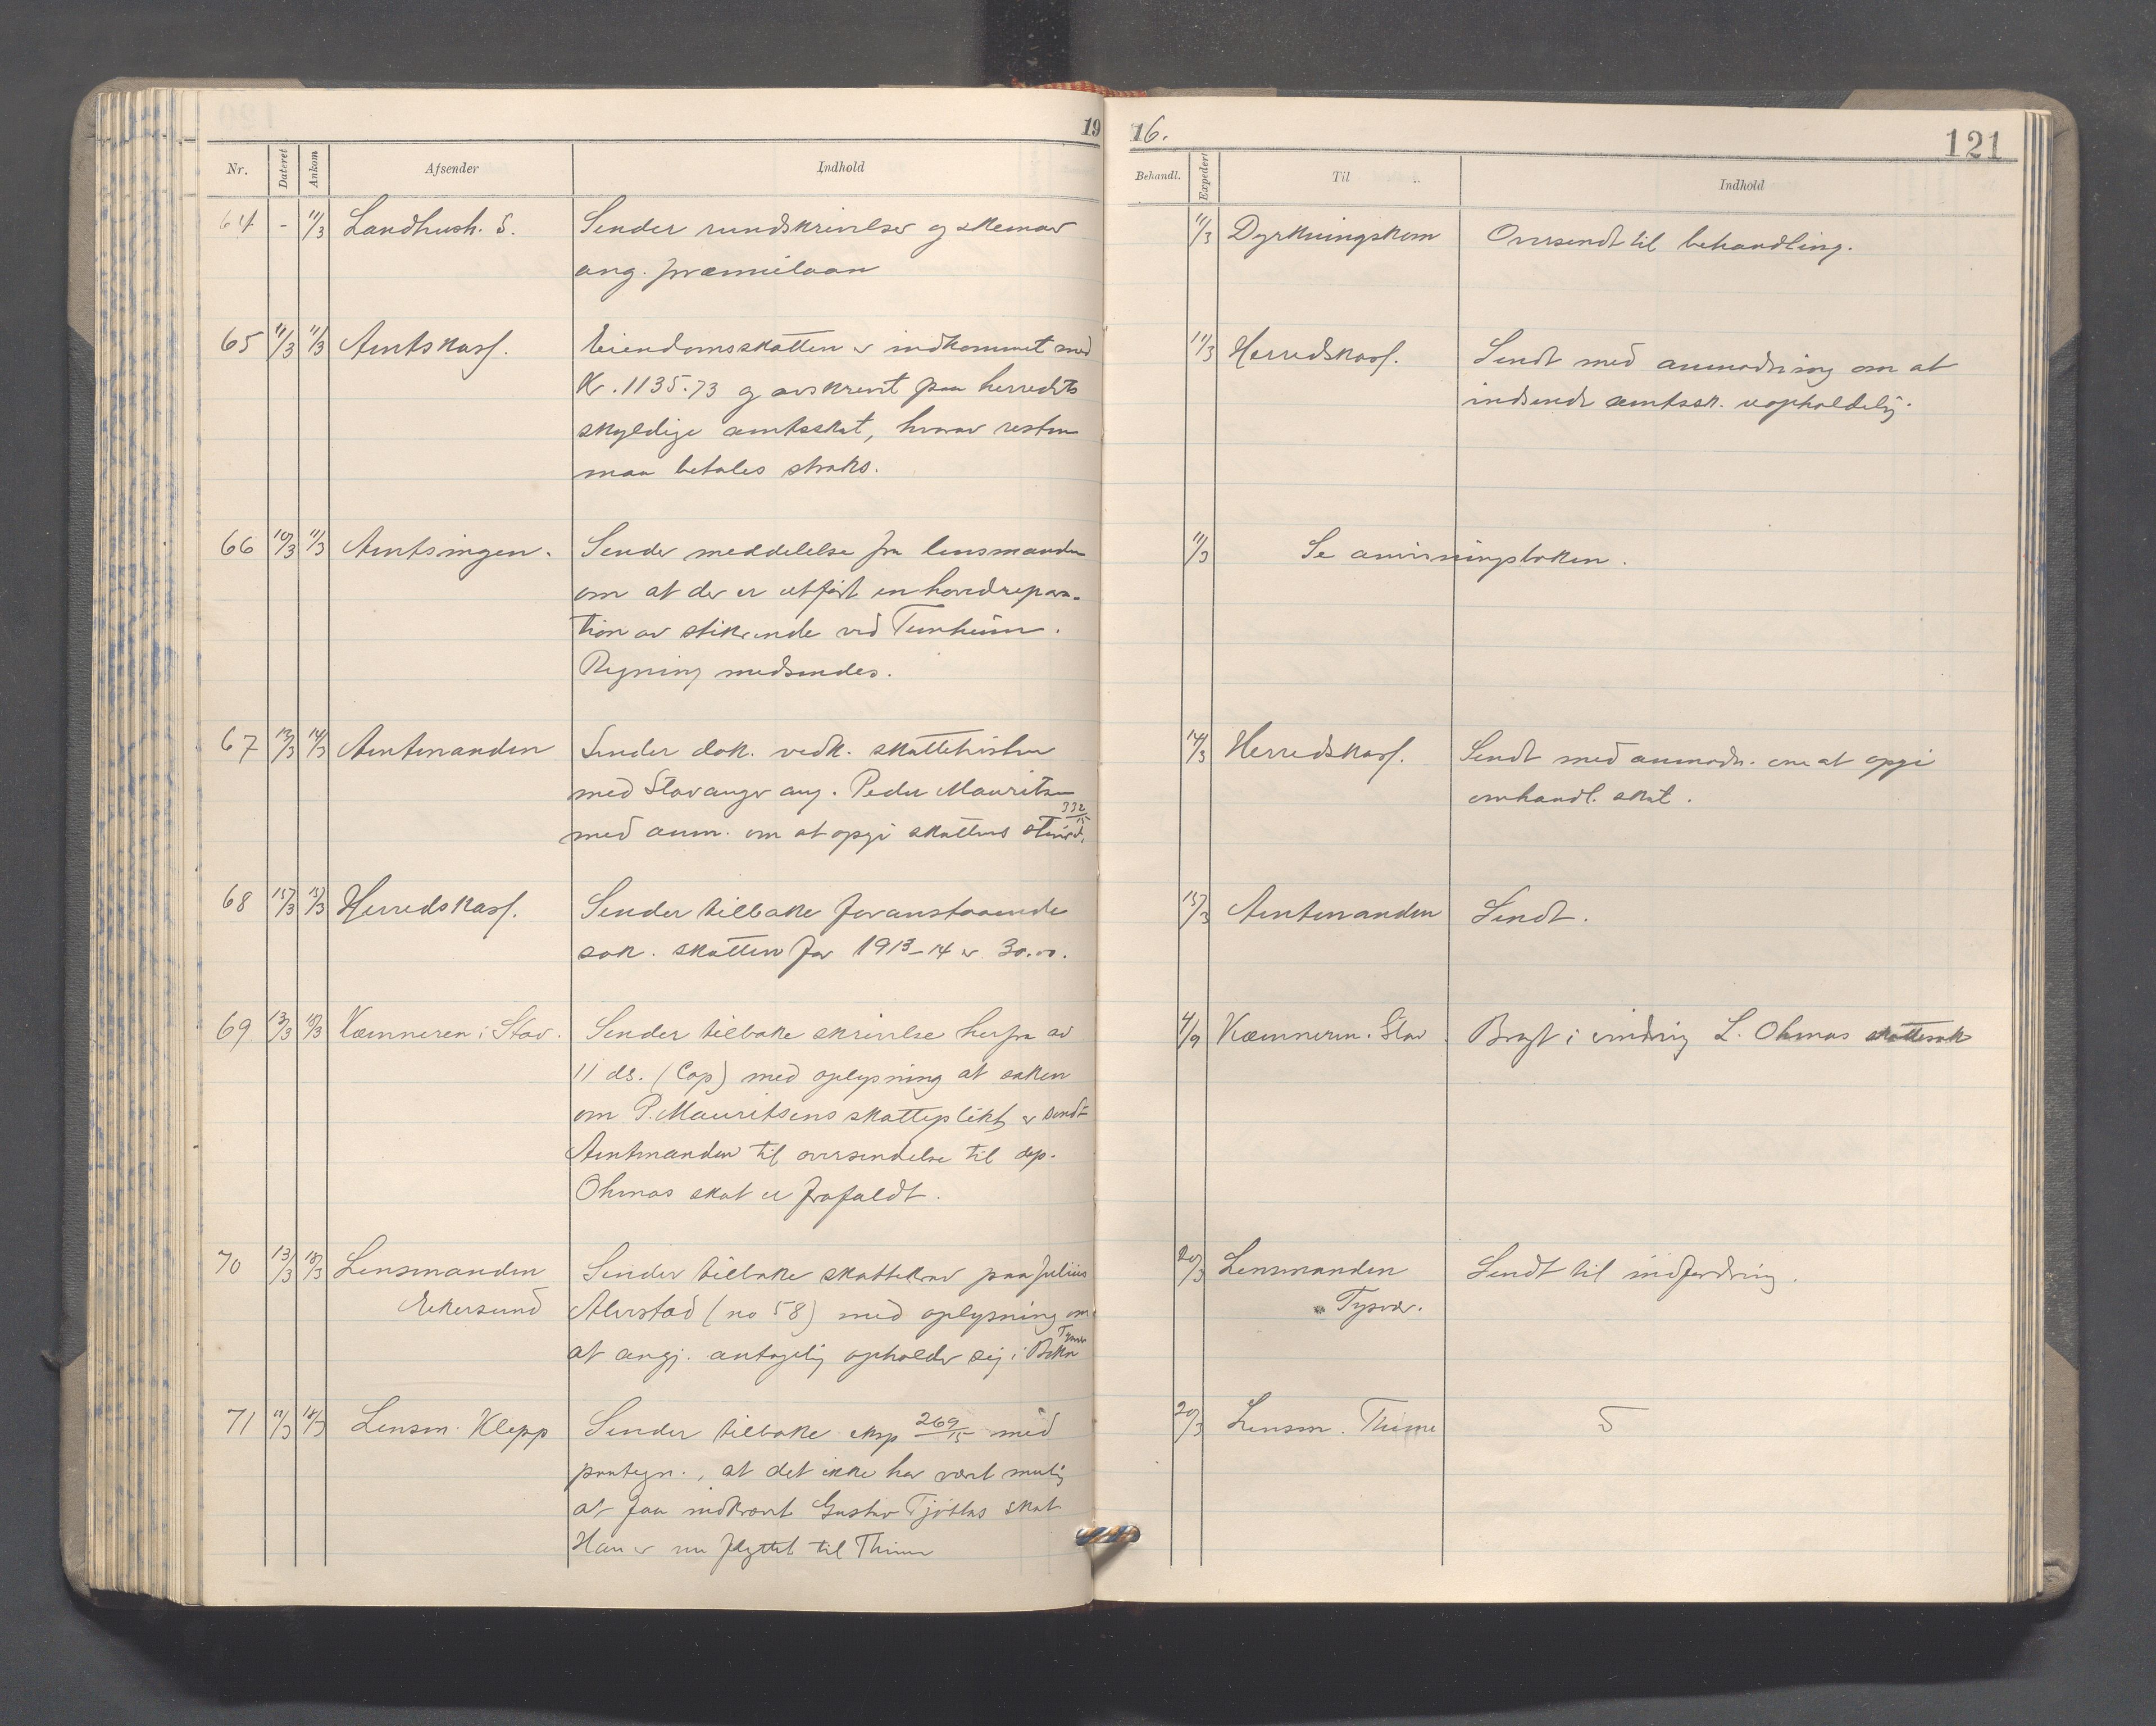 19
16.
121
Nr.
Dateret
Ankom
Afsender
Indhold
Behandl.
Expedert
Til
Indhold
64 - 11/3 Landhush. S. Sender rundskrivelser og skemaer
ang. præmielaan
11/3 Dyrkningskom Oversendt til behandling.
65 11/3 11/3 Amtskass. Eiendomsskatten er indkommet med
Kr. 1135.73 og avskrevt paa herredets
skyldige amtsskat, hvorav resten
maa betales straks.
11/3 Herredskass. Sendt med anmodning om at
indsende amtssk. uopholdelig.
66 10/3 11/3 Amtsingen. Sender meddelelse fra lensmanden
om at der er utført en hovedrepara-
tion av stikrende ved Tunheim.
Regning medsendes.
11/3 Se anvisningsboken.
67 13/3 14/3 Amtmanden Sender dok. vedk. skattetvisten
med Stavanger ang. Peder Mauritsen
332/15
med anm. om at opgi skattens størd.
14/3 Herredskass. Sendt med anmodn. om at opgi
omhandl. skat.
68 15/3 15/3 Herredskass. Sender tilbake foranstaaende
sak. skatten for 1913-14 er 30.00.
15/3 Amtmanden Sendt.
69 13/3 15/3 Kæmneren i Stav. Sender tilbake skrivelse herfra av
11 ds. (Cop) med oplysning at saken
om P. Mauritsens skatteplikt er sendt
Amtmanden til oversendelse til dep.
Ohmas skat er frafaldt.
4/9 Kæmneren i Stav. Bragt i erindring L. Ohmas skattesak
70 13/3 18/3 Lensmanden Sender tilbake skattekrav paa Julius
Ekersund Alvestad (no 58) med oplysning om
Tysvær
at angj. antagelig opholder sig i Bokn
20/3 Lensmanden Sendt til indfordring.
Tysvær.
71 17/3 18/3 Lensm. Klepp Sender tilbake eksp 269/15 med
paategn., at det ikke har vært mulig
at faa indkrævt Gustav Tjøttas skat
Han er nu flyttet til Thime
20/3 Lensm. Thime